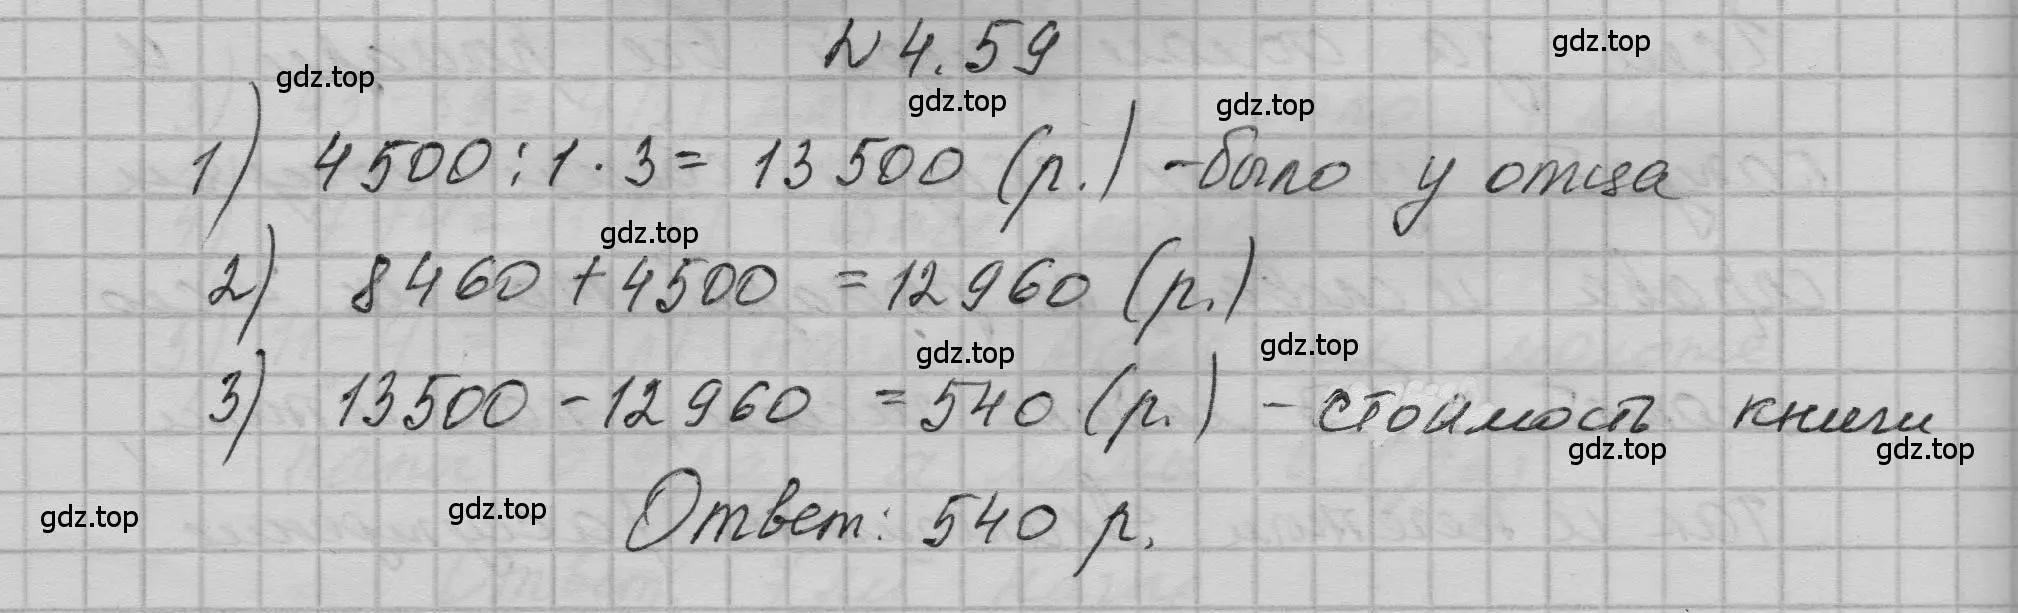 № 4.59
gdz.top
gdz.top
gdz.top
gdz.top
1) 4500 : 1 · 3 = 13 500 (р.) - было у отца
gdz.top
2) 8460 + 4500 = 12 960 (р.)
gdz.top
gdz.top
3) 13500 - 12 960 = 540 (р.) - стоимость книги
gdz.top
gdz.top
gdz.top
gdz.top
Ответ: 540 р.